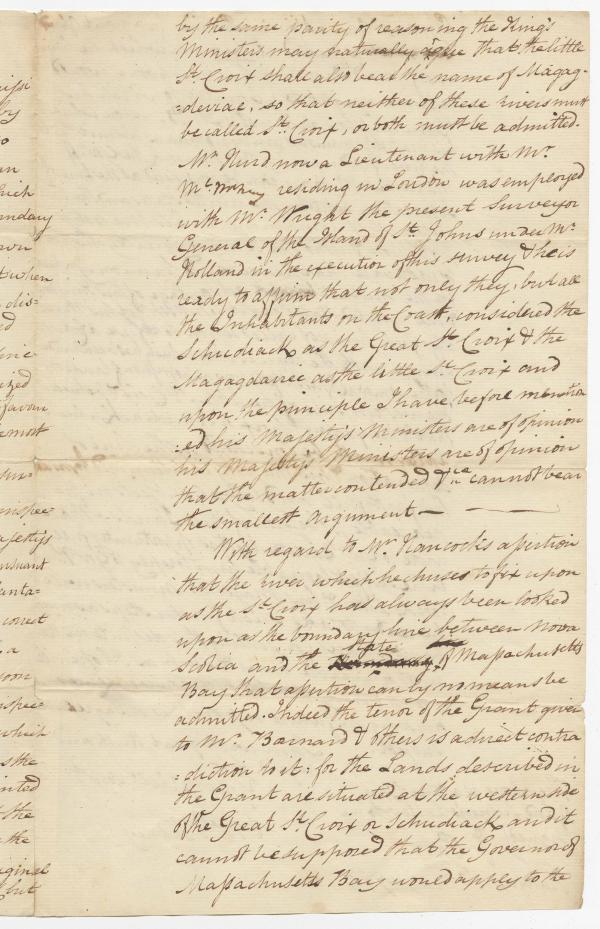 by the same parity of reasoning the King's
Ministers may naturally argue that the little
St. Croix shall also bear the name of Magag-
=deviac, so that neither of these rivers must
be called St. Croix, or both must be admitted.
Mr. Hurd now a Lieutenant with Mr.
residing in London was employed
with Mr. Wright the present Surveyor
General of the Island of St. Johns under Mr.
Holland in the execution of this survey & he is
ready to affirm that not only they, but all
the Inhabitants on the Coast, considered the
Schudiack as the Great St. Croix & the
Magagdavic as the little St. Croix and
upon the principle I have before mention
=ed his Majesty's Ministers are of opinion
his Majesty's Ministers are of opinion
that the matter contended cannot bear
the smallest argument —
With regard to Mr. Hancock's assertion
that the river which he chuses to fix upon
as the St. Croix has always been looked
upon as the boundary line between Nova
Scotia and the State of Massachusetts
Bay that assertion can by no means be
admitted. Indeed the tenor of the Grant given
to Mr. Barnard & others is a direct contra
=diction to it: for the Lands described in
the Grant are situated at the western side
of the Great St. Croix or Schudiack and it
cannot be supposed that the Governor of
Massachusetts Bay would apply to the